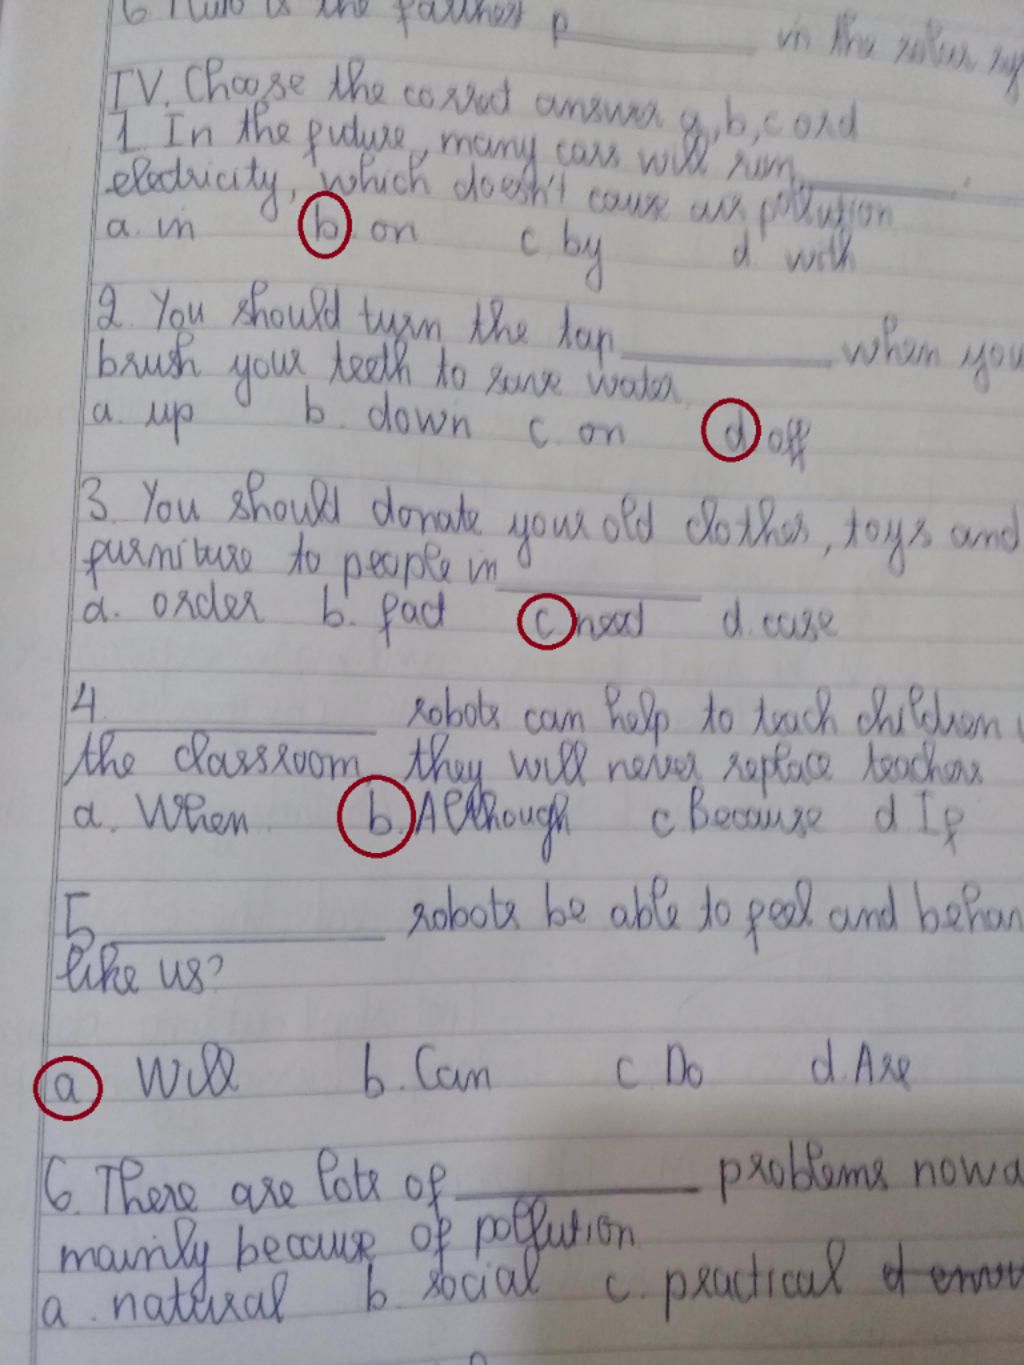 is the farthest p_______ in the solar
IV. Choose the correct answer a, b, c or d
1. In the future, many cars will run _______.
electricity, which doesn't cause air pollution
a. in b on c by d with
2. You should turn the tap _______ when you
brush your teeth to save water
a. up b. down c. on d off
3. You should donate your old clothes, toys and
furniture to people in _______
a. order b. fact c. need d. case
4. _______ robots can help to teach children
the classroom they will never replace teachers
a. When b. Although c Because d If
5 _______ robots be able to feel and behav
like us?
a Will b. Can c Do d. Are
6. There are lots of _______ problems nowa
mainly because of pollution
a. natural b. social c. practical d